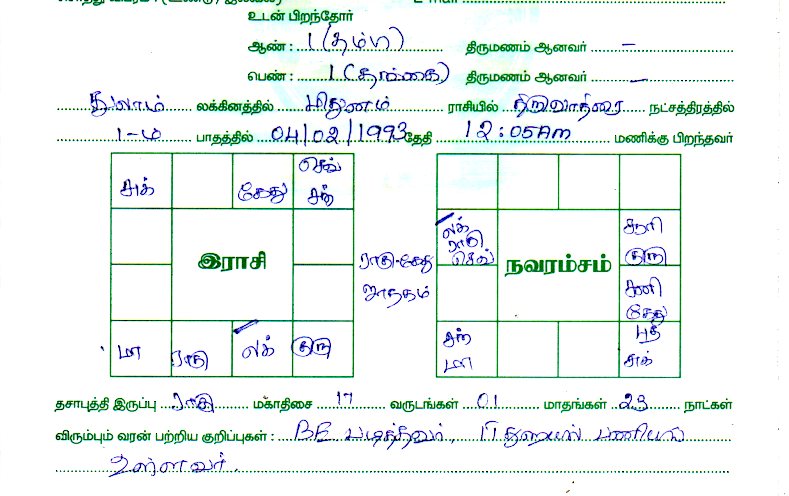 உடன் பிறந்தோர்
ஆண் : 1 (தம்பி) திருமணம் ஆனவர் –
பெண் : 1 (தங்கை) திருமணம் ஆனவர் –
துலாம் லக்கினத்தில் மிதுனம் ராசியில் திருவாதிரை நட்சத்திரத்தில்
1-ம் பாதத்தில் 04/02/1993 தேதி 12:05Am மணிக்கு பிறந்தவர்
சுக் கேது செவ் சந்
இராசி
மா ராகு லக் குரு
ராகு-கேது
ஜாதகம்
லக் ராகு செவ்
சூரி குரு
நவரம்சம்
சனி கேது
சந் மா புத் சுக்
தசாபுத்தி இருப்பு ராகு மகாதிசை 17 வருடங்கள் 01 மாதங்கள் 23 நாட்கள்
விரும்பும் வரன் பற்றிய குறிப்புகள் : BE படித்தவர், IT துறையில் பணியில்
உள்ளவர்.